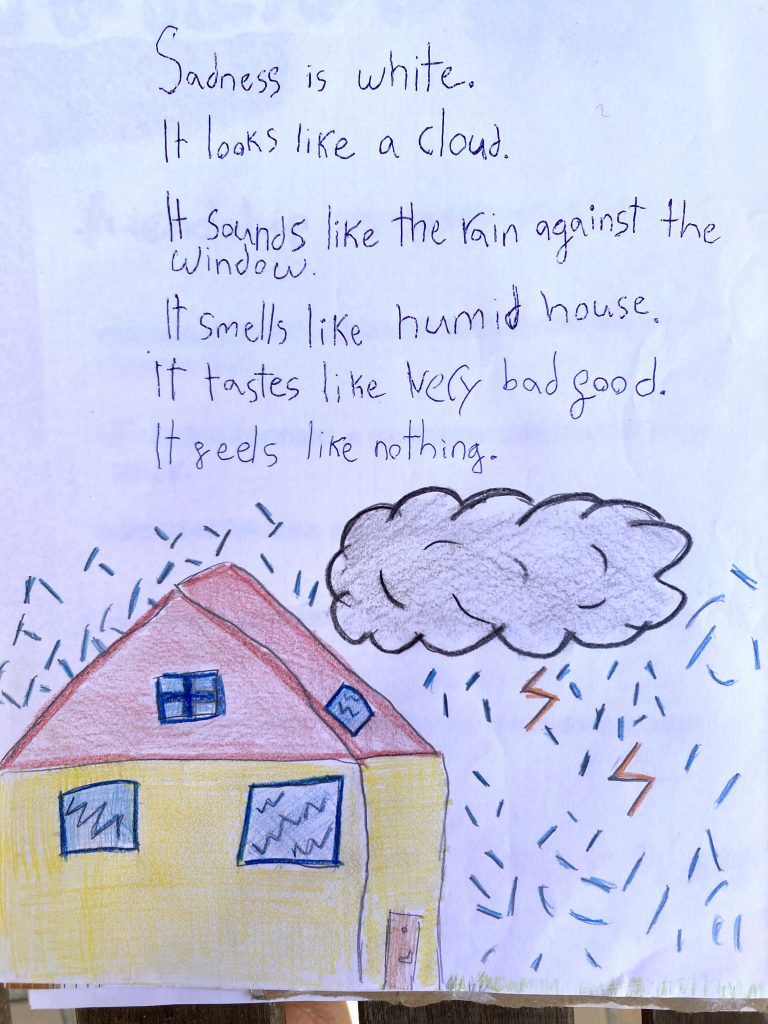 Sadness is white.
It looks like a cloud.
It sounds like the rain against the
window.
It smells like humid house.
It tastes like very bad good.
It geels like nothing.